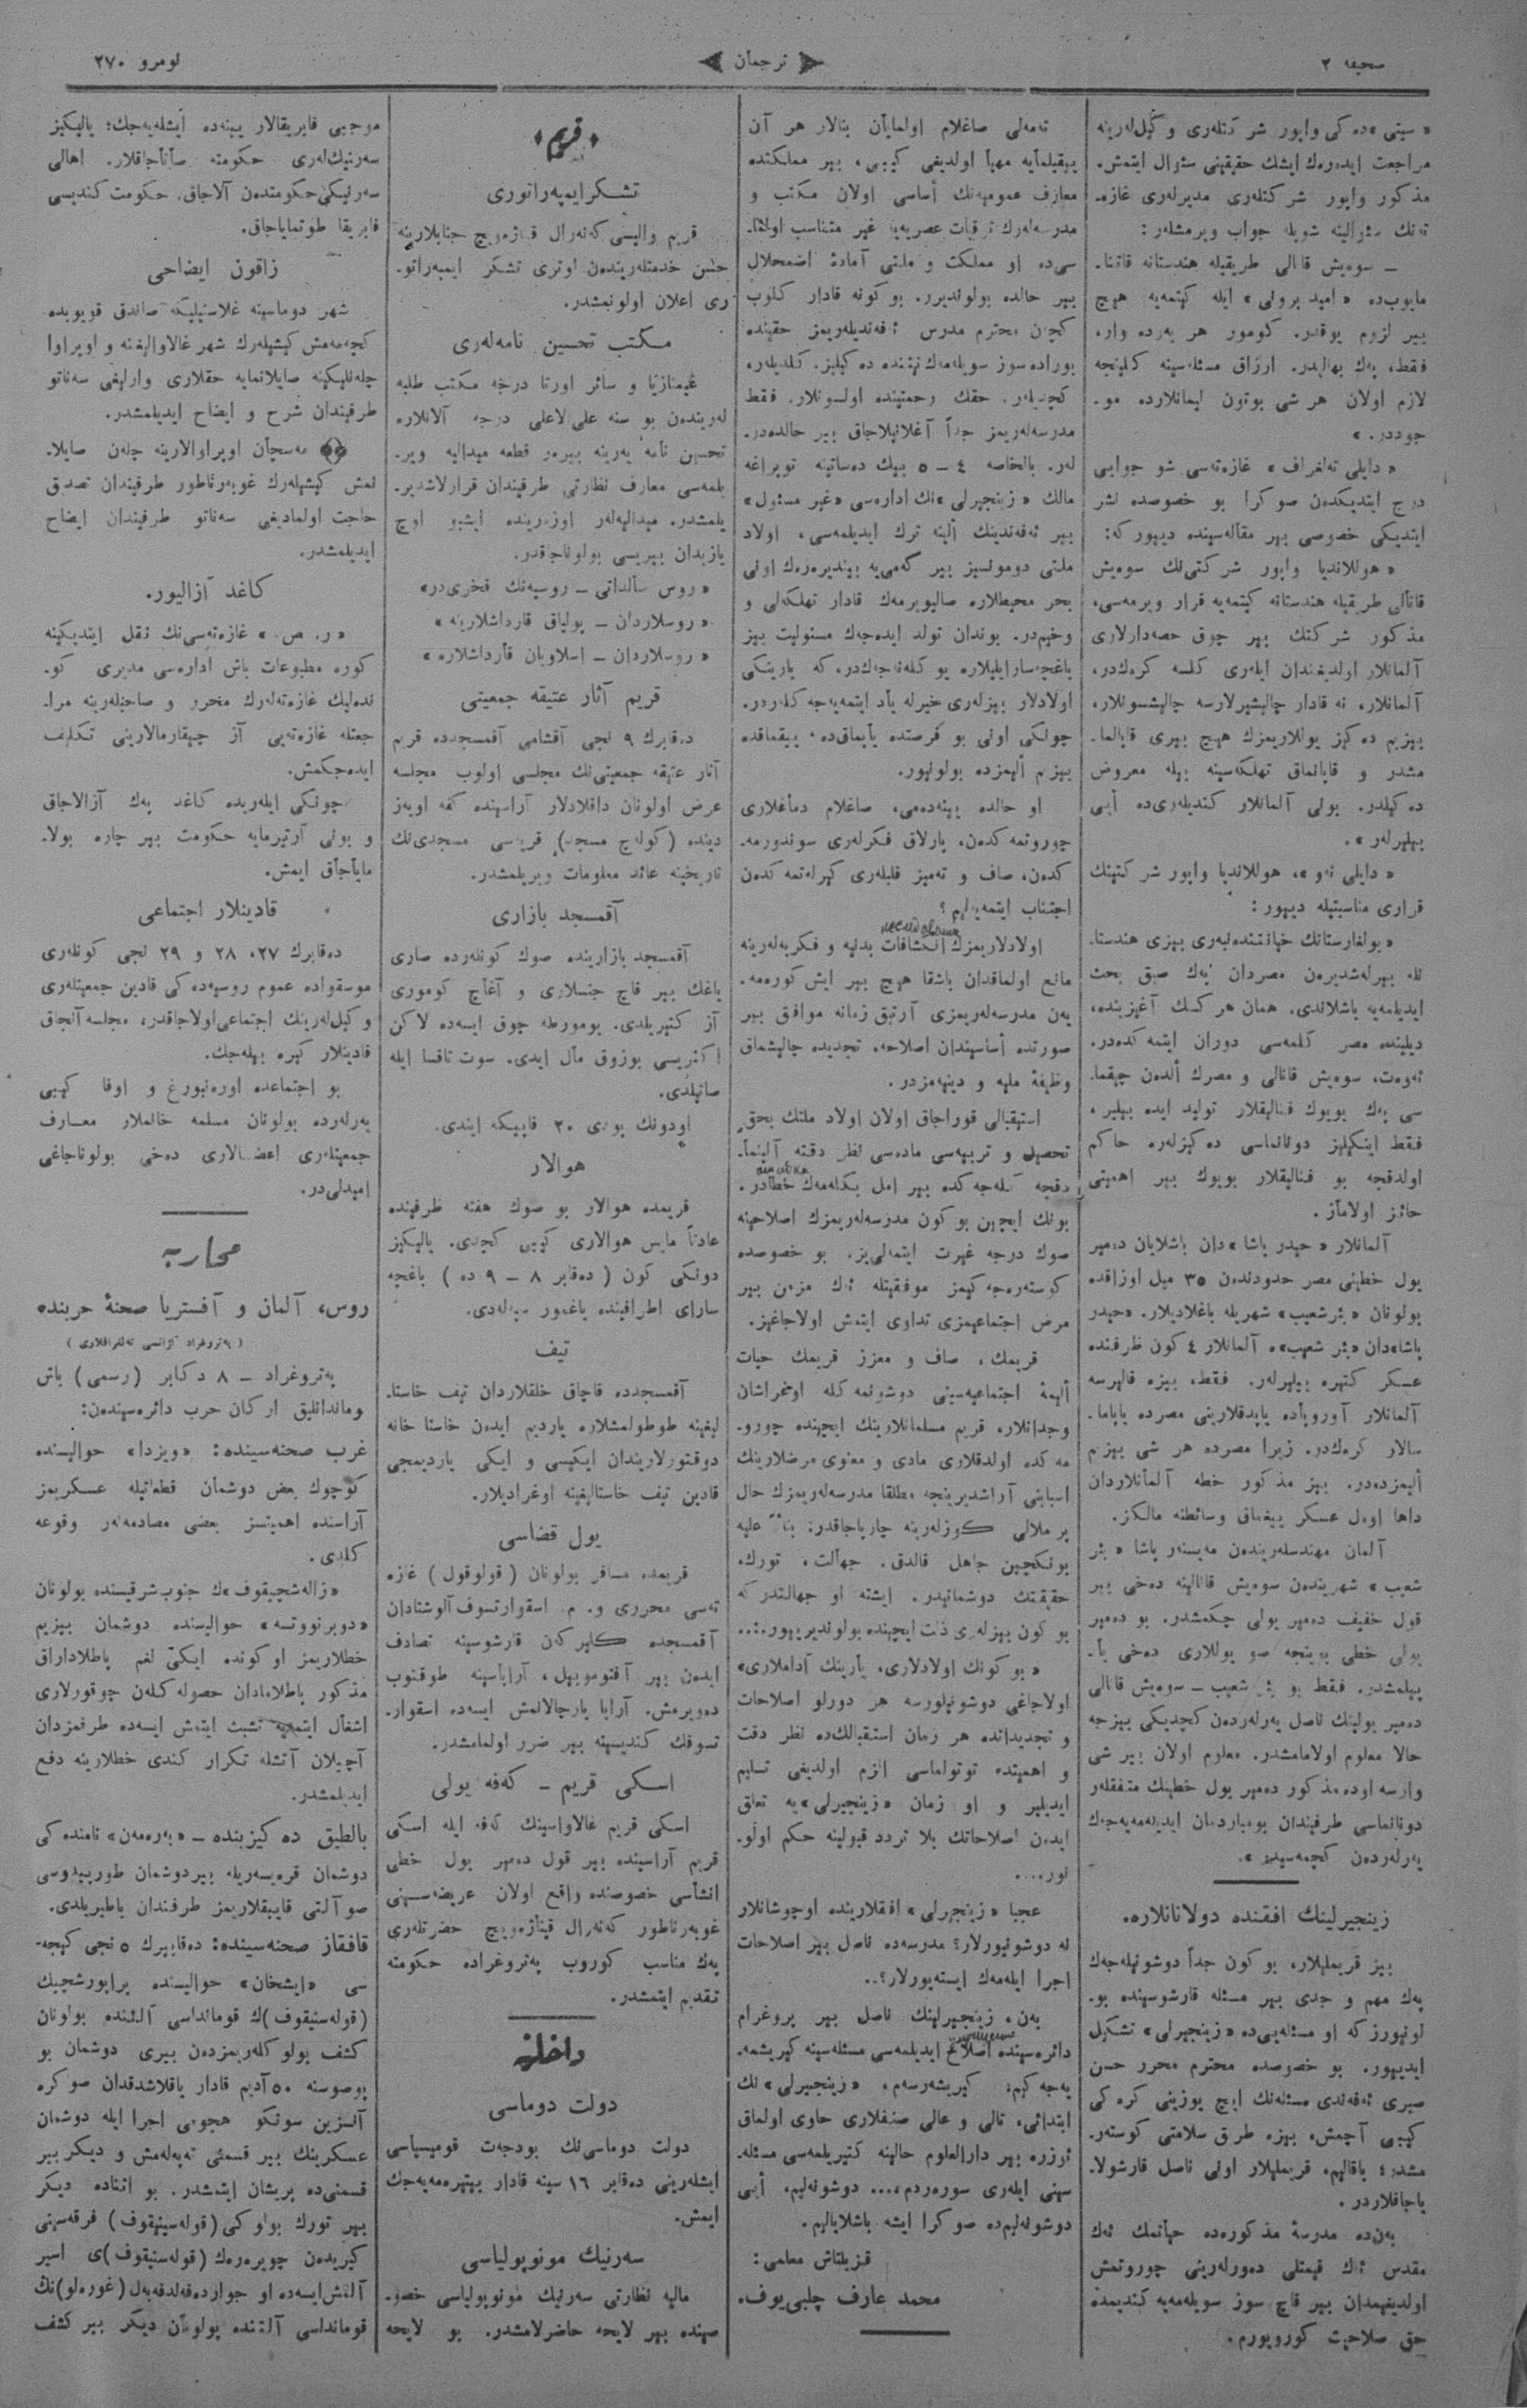 صحیفه ۲
ترجمان
نومرو ۲۷۰
« سیتی »ده كی واپور شركتلری و كیل‌لرینه
مراجعت ایده‌رك ایشك حقیقینی سئوال ایتمش.
مذكور واپور شركتلری مدیرلری غازه‌-
ته‌نك سئوالینه شویله جواب ویرمشلر :
— سوه‌یش قانالی طریقیله هندستانه قاتنا-
بیر لزوم یوقدر. كومور هر یه‌رده وار،
فقط، پك بهالیدر. ارزاق مسئله‌سینه كلینجه
لازم اولان هر شی بوتون لیمانلارده مو-
جوددر. »
« دایلی ته‌لغراف » غازه‌ته‌سی شو جوابی
درج ایتدیكدن صوكرا بو خصوصده نشر
ایتدیكی خصوصی بیر مقاله‌سینده دییور كه:
« هوللاندیا واپور شركتی‌نك سوه‌یش
قانالی طریقیله هندستانه كیتمه‌یه قرار ویرمه‌سی،
مذكور شركتك بیر چوق حصه‌دارلاری
آلمانلار اولدیغندان ایله‌ری كلسه كره‌ك‌در،
آلمانلار، نه قادار چالیشیرلارسه چالیشسونلار،
بیزیم ده‌كز یوللاریمزك هیچ بیری قاپالما-
مشدر و قاپانماق تهلكه‌سینه بیله معروض
ده‌كیلدر. بونی آلمانلار كندیله‌ری‌ده أیی
بیلیرلر ».
« دایلی نه‌و »، هوللاندیا واپور شركتینك
قراری مناسبتیله دییور :
« بولغارستانك خیانتنده‌نبه‌ری بیزی هندستا-
نله بیرله‌شدیره‌ن مصردان پك صیق بحث
ایدیلمه‌یه باشلاندی. همان هر كسك آغیزینده،
دیلینده مصر كلمه‌سی دوران ایتمه‌كده‌در.
ئه‌وه‌ت، سوه‌یش قانالی و مصرك ألدن چیقما-
سی پك بویوك فنالیقلار تولید ایده بیلیر،
فقط اینكیلیز دونانماسی ده‌كیزلره حاكم
اولدقجه بو فنالیقلار بویوك بیر اهمیتی
حائز اولاماز.
آلمانلار « حیدر پاشا »دان باشلایان ده‌میر
یول خطینی مصر حدودندن ۳۵ میل اوزاقده
بولونان « بئرشعیب » شهریله باغلادیلار. «حیدر
پاشا»دان «بئر شعیب»ه آلمانلار ٤ كون ظرفنده
عسكر كتیره بیلیرلر. فقط، بیزه قالیرسه
آلمانلار آوروپاده یاپدقلارینی مصرده یاپاما-
سالار كره‌ك‌در. زیرا مصرده هر شی بیزیم
ألیمزده‌در. بیز مذكور خطه آلمانلاردان
داها اوول عسكر ییغماق وسائطنه مالكز.
آلمان مهندسلریندن مه‌یسنه‌ر پاشا « بئر
شعیب » شهریندن سوه‌یش قانالینه ده‌خی بیر
قول خفیف ده‌میر یولی چكمشدر. بو ده‌میر
یولی خطی بوینجه صو یوللاری ده‌خی یا-
پیلمشدر. فقط بو بئر شعیب — سوه‌یش قانالی
ده‌میر یولینك ناصل یه‌رلردن كچدیكی بیزجه
حالا معلوم اولامامشدر. معلوم اولان بیر شی
وارسه اوده مذكور ده‌میر یول خطینك متفقلر
دونانماسی طرفیندان بومباردمان ایدیله‌مه‌یه‌جك
یه‌رلردن كچمه‌سیدر ».
زینجیرلینك افقنده دولانانلاره.
بیز قریملیلار، بو كون جداً دوشونیله‌جك
پك مهم و جدی بیر مسئله قارشوسینده بو-
لونیورز كه او مسئله‌یی‌ده « زینجیرلی » تشكیل
ایدییور. بو خصوصده محترم محرر حسن
صبری ئه‌فه‌ندی مسئله‌نك ایچ یوزینی كره‌كی
كیبی آچمش، بیزه طریق سلامتی كوسته‌ر-
مشدر؛ باقالیم، قریملیلار اونی ناصل قارشولا-
یاجاقلاردر.
به‌ن‌ده مدرسهٔ مذكوره‌ده حیاتمك ئه‌ك
مقدس ئه‌ك قیمتلی ده‌ورلرینی چوروتمش
اولدیغیمدان بیر قاچ سوز سویله‌مه‌یه كندیمده
حق صلاحیت كورویورم.
تمه‌لی صاغلام اولمایان بنالار هر آن
ییقیلمایه مهیأ اولدیغی كیبی، بیر مملكتده
معارف عمومیه‌نك أساسی اولان مكتب و
مدرسه‌لرك ترقیات عصریه‌یه غیر متناسب اولما-
سی‌ده او مملكت و ملتی آمادهٔ اضمحلال
بیر حالده بولوندیرر. بو كونه قادار كلوب
كچن محترم مدرس ئه‌فه‌ندیلریمز حقینده
بوراده سوز سویله‌مك نیتنده ده‌كیلیز. كلدیلر،
كچدیلر. حقك رحمتینده اولسونلار. فقط
مدرسه‌لریمز جداً آغلانیلاجاق بیر حالده‌در-
لر. بالخاصه ٤ — ٥ بیك ده‌ساتینه توپراغه
مالك « زینجیرلی »نك اداره‌سی «غیر مسئول»
بیر ئه‌فه‌ندینك ألینه ترك ایدیلمه‌سی، اولاد
ملتی دومونسیز بیر كه‌می‌یه بیندیره‌ره‌ك اونی
بحر محیطلاره صالیویرمه‌ك قادار تهلكه‌لی و
وخیم‌در. بوندان تولد ایده‌جك مسئولیت بیز
باغچه‌سارایلیلاره یوكله‌نه‌جك‌در. كه یارینكی
اولادلار بیزلری خیرله یاد ایتمه‌یه‌جكلردر.
چونكی اونی بو فرصتده یاپماق‌ده، ییقماقده
بیزیم ألیمزده بولونیور.
او حالده بینه‌ده‌می، صاغلام دماغلاری
چوروتمه‌كدن، پارلاق فكرلری سوندورمه-
كدن، صاف و تمیز قلبلری كیرله‌تمه‌كدن
اجتناب ایتمه‌یه‌لیم ؟
اولادلاریمزك انكشافات بدنیه و فكریه‌لرینه
مانع اولماقدان باشقا هیچ بیر ایش كورمه-
یه‌ن مدرسه‌لریمزی آرتیق زمانه موافق بیر
صورتده أساسیندان اصلاحه، تجدیده چالیشماق
وظیفهٔ ملیه و دینیه‌مزدر.
استقبالی قوراجاق اولان اولاد ملتك بحق
تحصیل و تربیه‌سی ماده‌سی نظر دقته آلینما-
دقجه كله‌جكده بیر امل بكله‌مك خطادر.
بونك ایچین بو كون مدرسه‌لریمزك اصلاحینه
صوك درجه غیرت ایتمه‌لی‌یز. بو خصوصده
كوسته‌ره‌جه‌كیمز موفقیتله ئه‌ك مزمن بیر
مرض اجتماعیمزی تداوی ایتمش اولاجاغیز.
قریمك، صاف و معزز قریمك حیات
ألیمهٔ اجتماعیه‌سینی دوشونمه‌كله اونخراشان
وجدانلار، قریم مسلمانلارینك ایچینده چورو-
مه‌كده اولدقلاری مادی و معنوی مرضلارینك
اسبابنی آراشدیرینجه مطلقا مدرسه‌لریمزك حال
پر ملالی كوزلرینه چارپاجاقدر؛ بناءً علیه
بونكچین جاهل قالدق. جهالت، تورك،
حقیقتك دوشمانیدر. ایشته او جهالتدر كه
بو كون بیزلری ذلت ایچینده بولوندیرییور....
« بو كونك اولادلاری، یارینك آداملاری»
اولاجاغی دوشونیلورسه هر دورلو اصلاحات
و تجدیداتده هر زمان استقبالك‌ده نظر دقت
و اهمیتده توتولماسی الزم اولدیغی تسلیم
ایدیلیر و او زمان « زینجیرلی »یه تعلق
ایدن اصلاحاتك بلا تردد قبولینه حكم اولو-
نور....
عجبا « زینجیرلی » افقلارینده اوچوشانلار
نه دوشونیورلار؟ مدرسه‌ده ناصل بیر اصلاحات
اجرا ایله‌مك ایسته‌یورلار؟..
به‌ن، زینجیرلینك ناصل بیر پروغرام
دائره‌سینده اصلاح ایدیلمه‌سی مسئله‌سینه كیریشمه-
یه‌جه‌كیم؛ كیریشه‌رسه‌م، « زینجیرلی »نك
ابتدائی، تالی و عالی صنفلاری حاوی اولماق
ئوزره بیر دارالعلوم حالینه كتیریلمه‌سی مسئله-
سینی ایله‌ری سوره‌ردم.... دوشونه‌لیم. أیی
دوشونه‌لیم‌ده صوكرا ایشه باشلایالیم.
قزیلتاش معلمی:
محمد عارف چلبی‌یوف.
قریم
تشكر ایمپه‌راتوری
قریم والیسی كه‌نه‌رال قنیاژه‌ویچ جنابلارینه
حسن خدمتلریندن اوتری تشكر ایمپه‌راتو-
ری اعلان اولونمشدر.
مكتب تحسین نامه‌لری
غیمنازیا و سائر اورتا درجه مكتب طلبه
لریندن بو سنه علی الاعلی درجه آلانلاره
تحسین نامه یه‌رینه بیره‌ر قطعه میدالیه ویر-
یلمه‌سی معارف نظارتی طرفیندان قرارلاشدیر-
یلمشدر. میدالیه‌لر اوزه‌رینده ایشبو اوچ
یازیدان بیریسی بولوناجاقدر.
« روس سالداتی — روسیه‌نك فخری‌در»
« روسلاردان — پولیاق قارداشلارینه »
« روسلاردان — اسلاویان قارداشلاره »
قریم آثار عتیقه جمعیتی
ده‌قابرك ۹ نجی آقشامی آقمسجدده قریم
آثار عتیقه جمعیتی‌نك مجلسی اولوب مجلسه
عرض اولونان داقلادلار آراسینده كفه اویه‌ز
دینده (كوله‌چ مسجد) قریه‌سی مسجدی‌نك
تاریخینه عائد معلومات ویریلمشدر.
آقمسجد بازاری
آقمسجد بازارینده صوك كونلرده صاری
یاغك بیر قاچ جنسلاری و آغاچ كوموری
آز كتیریلدی. یومورطه چوق ایسه‌ده لاكن
اكثریسی بوزوق مال ایدی. سوت تاقسا ایله
صاتیلدی.
اودونك پودی ۲۰ قاپیكه ایندی.
هوالار
قریمده هوالار بو صوك هفته ظرفینده
عادتاً مایس هوالاری كیبی كچدی. یالیكیز
دونكی كون ( ده‌قابر ۸ — ۹ ده ) باغچه
سارای اطرافینده یاغمور سپه‌له‌دی.
تیف
آقمسجدده قاچاق خلقلاردان تیف خاستا-
لیغینه طوطولمشلاره یاردیم ایدن خاستا خانه
دوقتورلاریندان ایكیسی و ایكی یاردیمجی
قادین تیف خاستالیغینه اوغرادیلار.
یول قضاسی
قریمده مسافر بولونان ( قولوقول ) غازه
ته‌سی محرری و. م. اسقوارتسوف آلوشتادان
آقمسجده كلیركن قارشوسینه تصادف
ایدن بیر آفتوموبیل، آراباسینه طوقنوب
ده‌ویرمش. آرابا پارچالانمش ایسه‌ده اسقوار-
تسوفك كندیسینه بیر ضرر اولمامشدر.
اسكی قریم — كه‌فه یولی
اسكی قریم غالاواسینك كه‌فه ایله اسكی
قریم آراسینده بیر قول ده‌میر یول خطی
انشاسی خصوصنده واقع اولان عریضه‌سینی
غوبه‌رناطور كه‌نه‌رال قنیاژه‌ویچ حضرتلری
پك مناسب كوروب په‌تروغراده حكومته
تقدیم ایتمشدر.
داخلیه
دولت دوماسی
دولت دوماسی‌نك بودجه‌ت قومیسیاسی
ایشلرینی ده‌قابر ۱٦ سینه قادار بیتیره‌مه‌یه‌جك
ایمش.
سه‌رنیك مونوپولیاسی
مالیه نظارتی سه‌رنیك مونوپولیاسی خصو-
صینده بیر لایحه حاضرلامشدر. بو لایحه
موجبی فابریقالار یینه‌ده ایشله‌یه‌جك؛ یالیكیز
سه‌رنیك‌لری حكومته صاتاجاقلار. اهالی
سه‌رنیكی حكومتدن آلاجاق. حكومت كندیسی
فابریقا طوتمایاجاق.
زاقون ایضاحی
شهر دوماسینه غلاسنیلیكه صاندق قویوبده
كچمه‌مش كیشیلرك شهر غالاوالیغنه و اوپراوا
چله‌نلیكینه صایلانمایه حقلاری وارلیغی سه‌ناتو
طرفیندان شرح و ایضاح ایدیلمشدر.
مه‌سچان اوپراوالارینه چله‌ن صایلا-
نمش كیشیلرك غوبه‌رناطور طرفیندان تصدیق
حاجت اولمادیغی سه‌ناتو طرفیندان ایضاح
ایدیلمشدر.
كاغد آزالیور.
« ر. ص. » غازه‌ته‌سی‌نك نقل ایتدیكینه
كوره مطبوعات باش اداره‌سی مدیری كو-
نده‌لیك غازه‌ته‌لرك محرر و صاحبلرینه مرا-
جعتله غازه‌ته‌یی آز چیقارمالارینی تكلیف
ایده‌جكمش.
چونكی ایله‌ریده كاغد پك آزالاجاق
و بونی آرتیرمایه حكومت بیر چاره بولا-
مایاجاق ایمش.
قادینلار اجتماعی
ده‌قابرك ۲۷، ۲۸ و ۲۹ نجی كونلری
موسقواده عموم روسیه‌ده كی قادین جمعیتلری
وكیل‌لرینك اجتماعی اولاجاقدر، مجلسه آنجاق
قادینلار كیره بیله‌جك.
بو اجتماعده اوره‌نبورغ و اوفا كیبی
یه‌رلرده بولونان مسلمه خانملار معارف
جمعیتلری اعضالاری ده‌خی بولوناجاغی
امیدلی‌در.
محاربه
روس، آلمان و آفستریا صحنهٔ حربنده
( په‌تروغراد آژانسی ته‌لغرافلاری )
په‌تروغراد — ۸ دكابر (رسمی) باش
قوماندانلیق اركان حرب دائره‌سیندن:
غرب صحنه‌سینده: «ویزدا» حوالیسنده
كوچوك بعض دوشمان قطعاتیله عسكریمز
آراسنده اهمیتسز بعضی مصادمه‌لر وقوعه
كلدی.
«زاله‌شچیقوف»ك جنوب شرقیسنده بولونان
«دوبرنووتسه» حوالیسنده دوشمان بیزیم
خطلاریمز اوكونده ایكی لغم پاطلاداراق
مذكور پاطلامادان حصوله كلن چوقورلاری
اشغال ایتمه‌یه تشبث ایتمش ایسه‌ده طرفمزدان
آچیلان آتشله تكرار كندی خطلارینه دفع
ایدیلمشدر.
بالطیق ده‌كیزینده — «بره‌مه‌ن» نامنده كی
دوشمان قره‌یسه‌ریله بیر دوشمان طورپیدوسی
صو آلتی قاییقلاریمز طرفندان باطیریلدی.
قافقاز صحنه‌سینده: ده‌قابرك ٥ نجی كیجه-
سی «ایشخان» حوالیسنده پراپورشچیك
(قوله‌سنیقوف)ك قومانداسی آلتنده بولونان
كشف بولوكلریمزدن بیری دوشمان بو
پوصوسنه ۵۰ آدیم قادار یاقلاشدقدان صوكره
آنسزین سونكو هجومی اجرا ایله دوشمان
عسكرینك بیر قسمنی ته‌په‌له‌مش و دیكر بیر
قسمنی‌ده پریشان ایتمشدر. بو اثناده دیكر
بیر تورك بولوكی (قوله‌سنیقوف) فرقه‌سینی
كیریدن چویره‌ره‌ك (قوله‌سنیقوف)ی اسیر
آلمش ایسه‌ده او جوارده فه‌لدفه‌بل (غوره‌لو)نك
قومانداسی آلتنده بولونان دیكر بیر كشف